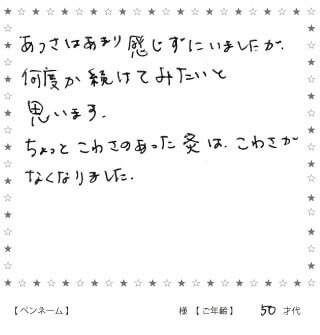 あつさはあまり感じずにいましたが、
何度か続けてみたいと
思います。
ちょっとこわさのあった灸は、こわさが
なくなりました。
【ペンネーム】 様 【ご年齢】 50 才代